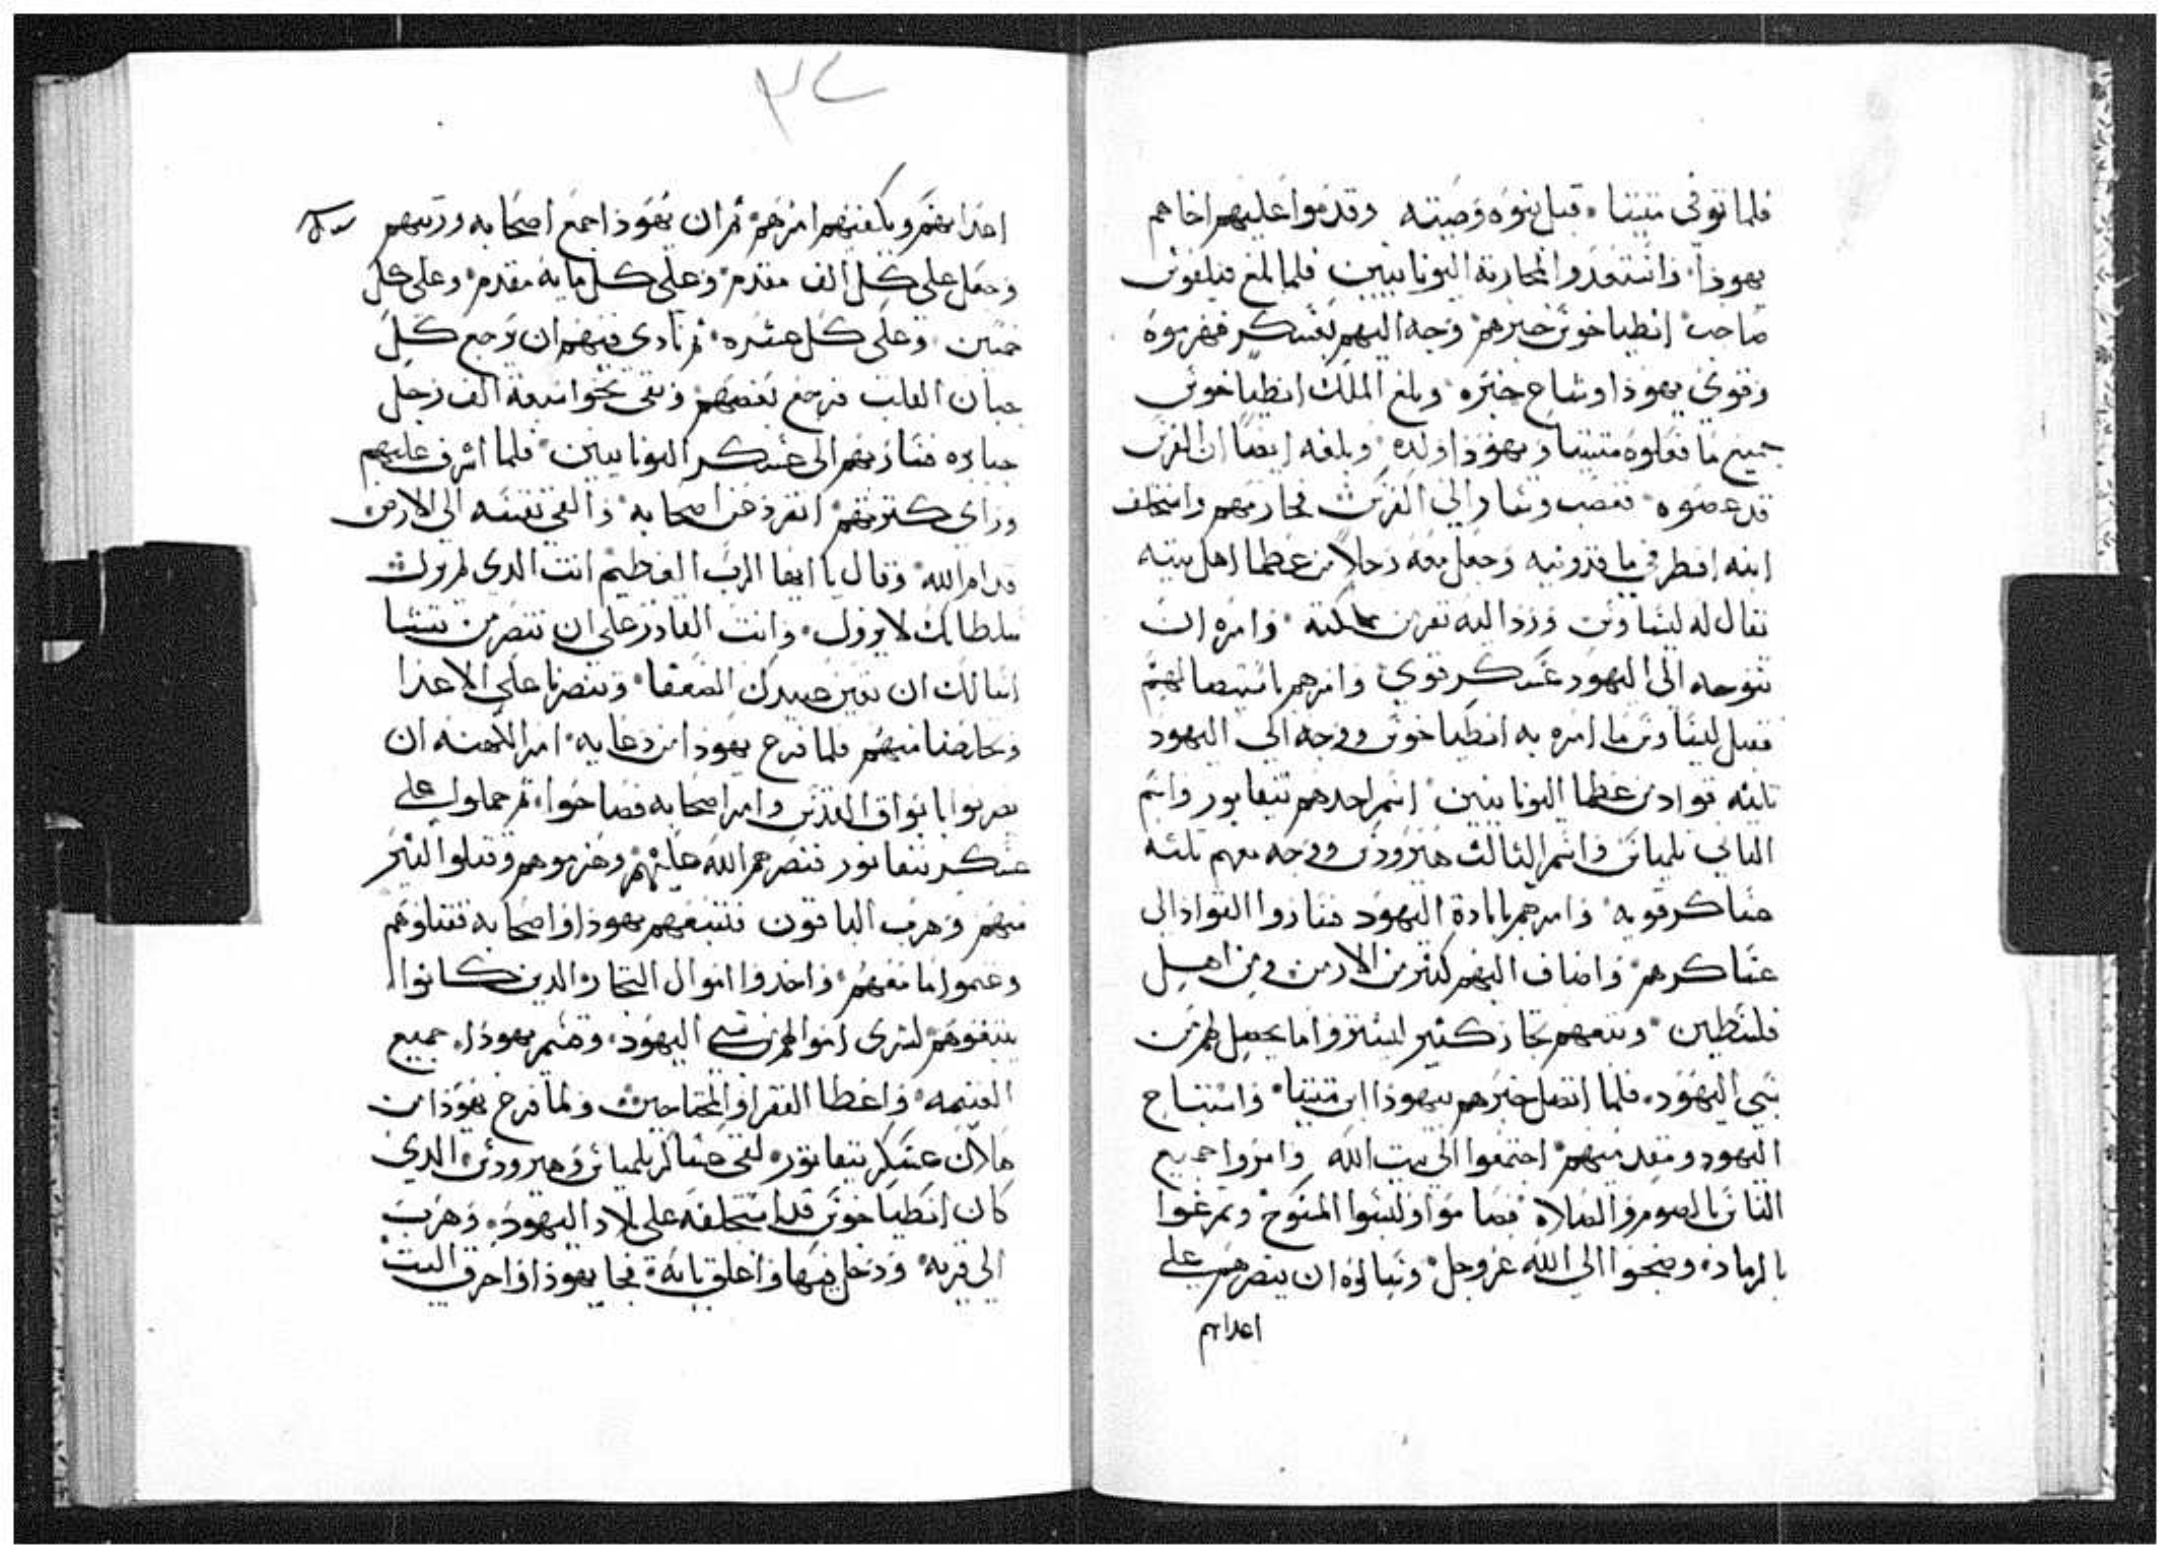 فلما توفي متيتيا قبل بنوه وصيته وقدموا عليهم اخاهم
يهوذا واستعدوا لمحاربة اليونانيين فلما بلغ فيلفوس
صاحب انطياخوس خبرهم وجه اليهم بعسكر فهزموه
وقوي يهوذا وشاع خبره وبلغ الملك انطياخوس
جميع ما فعلوه متيتيا ويهوذا ولده وبلغه ايضا ان الفرس
قد عصوه فغضب وسار الي الفرس لمحاربتهم واستخلف
ابنه افطر في ماقدونيه وجعل معه رجلا من عظما اهل بيته
يقال له ليساوس ورد اليه تدبير مملكته وامره ان
يتوجه الى اليهود عسكر قوي وامرهم باستيصالهم
فقبل ليساوس ما امره به انطياخوس ووجه الي اليهود
تلتة قواد من عظما اليونانيين اسم احدهم نيقانور واسم
التاني تلمياس واسم الثالث هيرودس ووجه معهم تلته
عساكر قويه وامرهم بابادة اليهود فساروا القواد الي
عساكرهم واضاف اليهم كتير من الارمن ومن اهل
فلسطين وتبعهم تجار كثير ليشتروا ما يحصل لهم من
سبي اليهود فلما اتصل خبرهم بيهوذا ابن متيتيا واشياخ
اليهود ومقدميهم اجتمعوا الي بيت الله وامروا جميع
الناس بالصوم والصلاة فصاموا ولبسوا المسوح وتمرغوا
بالرماد وضجوا الي الله عز وجل وسالوه ان ينصرهم علي
اعدايهم
٣٤
اعدايهم ويكفيهم امرهم ثم ان يهوذا جمع اصحابه ورتبهم
وجعل على كل الف مقدم وعلى كل مايه مقدم وعلى كل
خمسين وعلى كل عشره ثم نادى فيهم ان يرجع كل
جبان القلب فرجع بعضهم وبقي نحو سبعة الف رجل
جبابره فسار بهم الى عسكر اليونانيين فلما اشرف عليهم
وراى كترتهم انفرد عن اصحابه والقى نفسه الي الارض
قدام الله وقال يا ايها الرب العظيم انت الدي لم يزل
سلطانك لا يزول وانت القادر على ان تنصر من تشا
اسالك ان تعين عبيدك الضعفا وتنصرنا على الاعدا
وتخلصنا منهم فلما فرغ يهوذا من دعايه امر الكهنه ان
يضربوا بابواق القدس وامر اصحابه فصاحوا ثم حملوا على
عسكر نيقانور فنصرهم الله عليهم وهزموهم وقتلوا اكتر
منهم وهرب الباقون فتبعهم يهوذا واصحابه فقتلوهم
وغنموا ما معهم واخدوا اموال التجار الدين كانوا
يتبعوهم لشرى اموالهم من سبي اليهود وقسم يهوذا جميع
الغنيمه واعطا الفقرا والمحتاجين ولما فرغ يهوذا من
هلاك عسكر نيقانور لقي عساكر تلمياس وهيرودس الدي
كان انطياخوس قد استخلفه على بلاد اليهود وهرب
الي قريه ودخل فيها واغلق بابه فجا يهوذا واحرق البيت